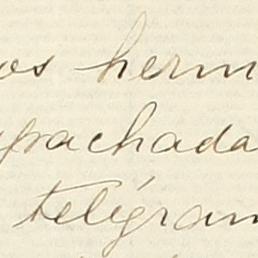 os herm
spachada
telégram